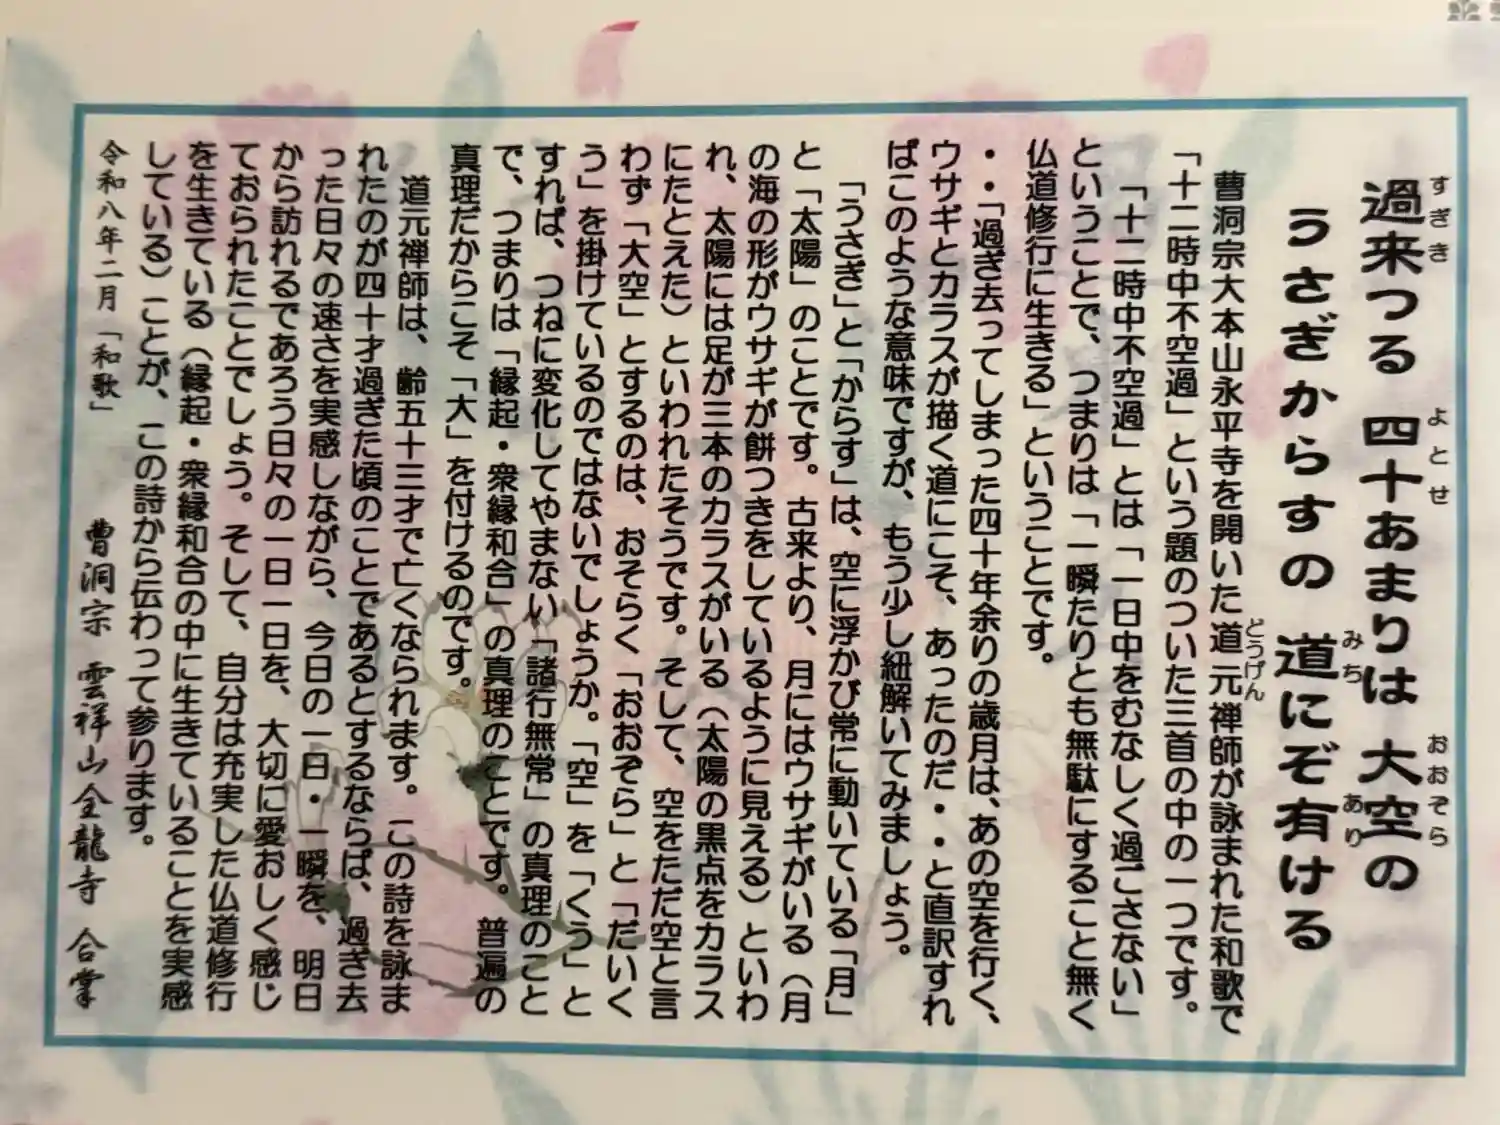 過来つる 四十あまりは 大空の
すぎき よとせ おおぞら
うさぎからすの 道にぞ有ける
みち あり
曹洞宗大本山永平寺を開いた道元禅師が詠まれた和歌で
どうげん
「十二時中不空過」という題のついた三首の中の一つです。
「十二時中不空過」とは「一日中をむなしく過ごさない」
ということで、つまりは「一瞬たりとも無駄にすること無く
仏道修行に生きる」ということです。
・・「過ぎ去ってしまった四十年余りの歳月は、あの空を行く、
ウサギとカラスが描く道にこそ、あったのだ・・と直訳すれ
ばこのような意味ですが、もう少し紐解いてみましょう。
「うさぎ」と「からす」は、空に浮かび常に動いている「月」
と「太陽」のことです。古来より、月にはウサギがいる（月
の海の形がウサギが餅つきをしているように見える）といわ
れ、太陽には足が三本のカラスがいる（太陽の黒点をカラス
にたとえた）といわれたそうです。そして、空をただ空と言
わず「大空」とするのは、おそらく「おおぞら」と「だいく
う」を掛けているのではないでしょうか。「空」を「くう」と
すれば、つねに変化してやまない「諸行無常」の真理のこと
で、つまりは「縁起・衆縁和合」の真理のことです。普遍の
真理だからこそ「大」を付けるのです。
道元禅師は、齢五十三才で亡くなられます。この詩を詠ま
れたのが四十才過ぎた頃のことであるとするならば、過ぎ去
った日々の速さを実感しながら、今日の一日・一瞬を、明日
から訪れるであろう日々の一日一日を、大切に愛おしく感じ
ておられたことでしょう。そして、自分は充実した仏道修行
を生きている（縁起・衆縁和合の中に生きていることを実感
している）ことが、この詩から伝わって参ります。
令和八年二月「和歌」 曹洞宗 雲祥山全龍寺 合掌